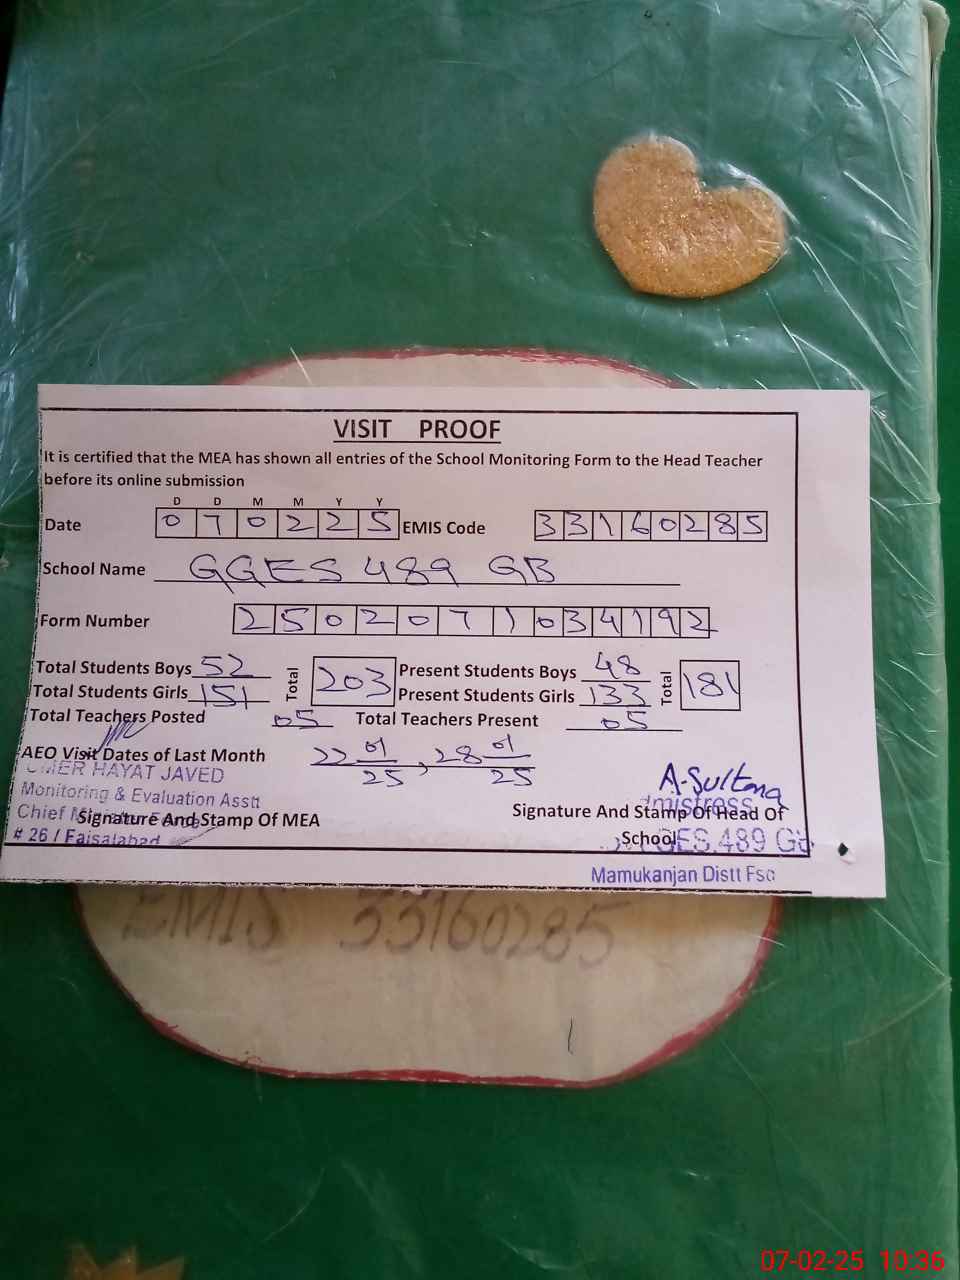 VISIT PROOF
It is certified that the MEA has shown all entries of the School Monitoring Form to the Head Teacher
before its online submission
D D M M Y Y
Date 0 7 0 2 2 5 EMIS Code 3 3 1 6 0 2 8 5
School Name GGES 489 GB
Form Number 2 5 0 2 0 7 1 0 3 4 1 9 2
Total Students Boys 52 Total 203 Present Students Boys 48 Total 181
Total Students Girls 151 Present Students Girls 133
Total Teachers Posted 05 Total Teachers Present 05
AEO Visit Dates of Last Month 22 01/25, 28 01/25
UMER HAYAT JAVED
Monitoring & Evaluation Asstt
A-Sultana
Chief
Signature And Stamp Of MEA
Signature And Stamp Of Head Of
mistress
# 26 / Faisalabad
School
GES.489 GB
Mamukanjan Distt Fsd
EMIS 33160285
07-02-25 10:36